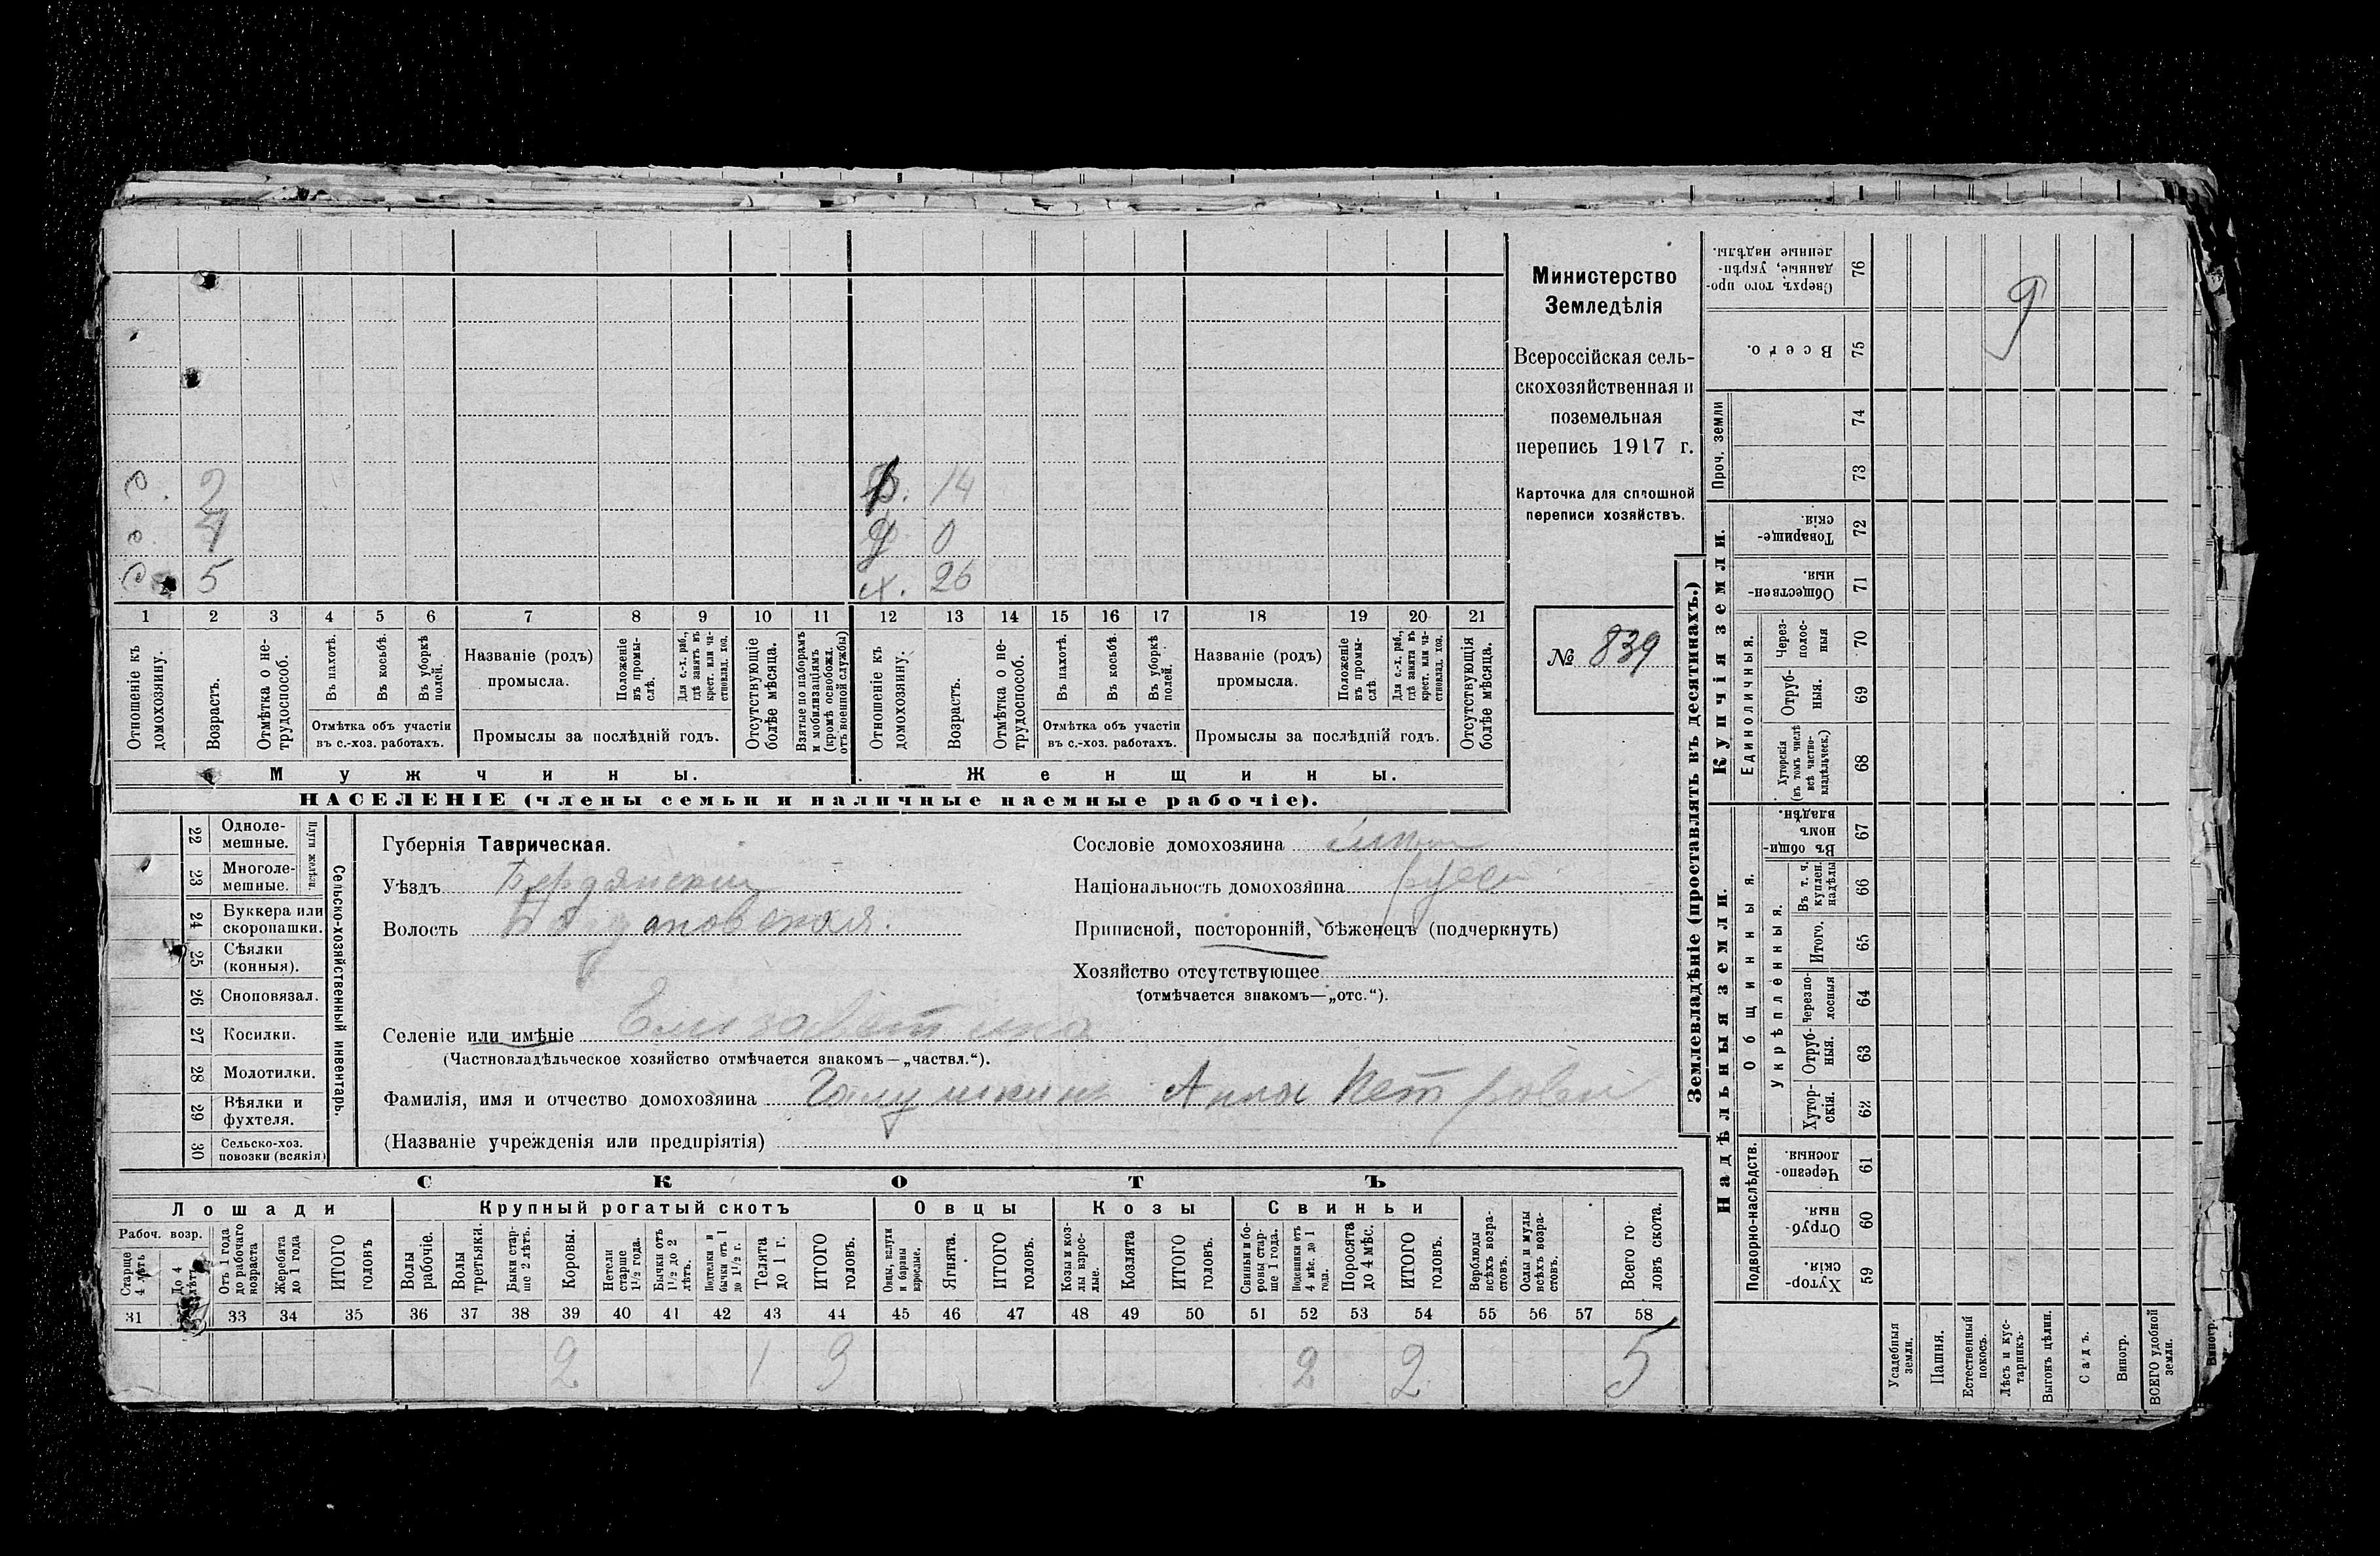 с. 2
с. 4
с. 5
14
0
х. 26
1 2 3 4 5 6 7 8 9 10 11 12 13 14 15 16 17 18 19 20 21
Отношеніе къ домохозяину.
Возрастъ.
Отмѣтка о не-
трудоспособ.
Въ пахотѣ.
Въ косьбѣ.
Въ уборкѣ полей.
Отмѣтка объ участіи
въ с.-хоз. работахъ.
Названіе (родъ)
промысла.
Положеніе
въ промы-
слѣ.
Для с.-х. раб.,
гдѣ занятъ въ
крест. или ча-
стновлад. хоз.
Промыслы за послѣдній годъ.
Отсутствующіе
болѣе мѣсяца.
Взятые по наборамъ
и мобилизаціямъ
(кромѣ освобожд.
отъ военной службы)
Отношеніе къ
домохозяину.
Возрастъ.
Отмѣтка о не-
трудоспособ.
Въ пахотѣ.
Въ косьбѣ.
Въ уборкѣ
полей.
Отмѣтка объ участіи
въ с.-хоз. работахъ.
Названіе (родъ)
промысла.
Положеніе
въ промы-
слѣ
Для с.-х. раб.,
гдѣ занята въ
крест. или ча-
стновлад. хоз.
Промыслы за послѣдній годъ.
Отсутствующія
болѣе мѣсяца.
Мужчины.
Женщины.
НАСЕЛЕНІЕ (члены семьи и наличные наемные рабочіе).
Министерство
Земледѣлія
Всероссійская сель-
скохозяйственная и
поземельная
перепись 1917 г.
Карточка для сплошной
переписи хозяйствъ.
№ 839
22 Одноле-
мешные.
23 Многоле-
мешные.
Плуги желѣзн.
24 Буккера или
скоропашки.
25 Сѣялки
(конныя).
26 Сноповязал.
27 Косилки.
28 Молотилки.
29 Вѣялки и
фухтеля.
30 Сельско-хоз.
повозки (всякія)
Сельско-хозяйственный инвентарь.
Губернія Таврическая.
Уѣздъ Бердянскій
Волость Богдановская.
Селеніе или имѣніе Елизаветина
(Частновладѣльческое хозяйство отмѣчается знакомъ—„частвл.“).
Фамилія, имя и отчество домохозяина Анна Петровна
(Названіе учрежденія или предпріятія)
Сословіе домохозяина
Національность домохозяина русск
Приписной, посторонній, бѣженецъ (подчеркнуть)
Хозяйство отсутствующее
(отмѣчается знакомъ—„отс.“).
СКОТЪ
Лошади
Рабоч. возр.
Старше
4 лѣтъ
До 4
лѣтъ
Отъ 1 года
до рабочаго
возраста
Жеребята
до 1 года
ИТОГО
головъ
Крупный рогатый скотъ
Волы
рабочіе.
Волы
третьяки.
Быки стар-
ше 2 лѣтъ.
Коровы.
Нетели
старше
1½ года.
Бычки отъ
1½ до 2
лѣтъ.
Подтелки и
бычки отъ 1
до 1½ г.
Телята
до 1 г.
ИТОГО
головъ.
Овцы
Овцы, валухи
и бараны
взрослые.
Ягнята.
ИТОГО
головъ.
Козы
Козы и коз-
лы взрос-
лые.
Козлята
ИТОГО
головъ.
Свиньи
Свиньи и бо-
ровы стар-
ше 1 года.
Подсвинки отъ
4 мѣс. до 1
года.
Поросята
до 4 мѣс.
ИТОГО
головъ.
Верблюды
всѣхъ возра-
стовъ.
Ослы и мулы
всѣхъ возра-
стовъ.
Всего го-
ловъ скота.
31 33 34 35 36 37 38 39 40 41 42 43 44 45 46 47 48 49 50 51 52 53 54 55 56 57 58
2 1 3 2 2 5
Землевладѣніе (проставлять въ десятинахъ.)
Купчія земли.
Проч. земли
Сверхъ того про-
данные, укрѣп-
ленные надѣлы.
76
Всего.
75
74
73
Товарище-
скія.
72
Обществен-
ныя.
71
Единоличныя.
Через-
полос-
ныя
70
Отруб-
ныя.
69
Хуторскія
(въ томъ числѣ
всѣ частно-
владѣльческ.)
68
Надѣльныя земли.
Общинныя.
Въ общи-
номъ
владѣн.
67
Укрѣпленныя.
Въ т. ч.
куплен.
надѣлы
66
Итого.
65
Черезпо-
лосныя
64
Отруб-
ныя.
63
Хутор-
скія.
62
Подворно-наслѣдств.
Черезпо-
лосныя.
61
Отруб-
ныя.
60
Хутор-
скія.
59
Усадебныя
земли.
Пашня.
Естественный
покосъ.
Лѣсъ и кус-
тарникъ.
Выгонъ цѣлин.
Садъ.
Виногр.
ВСЕГО удобной
земли.
Виногр.